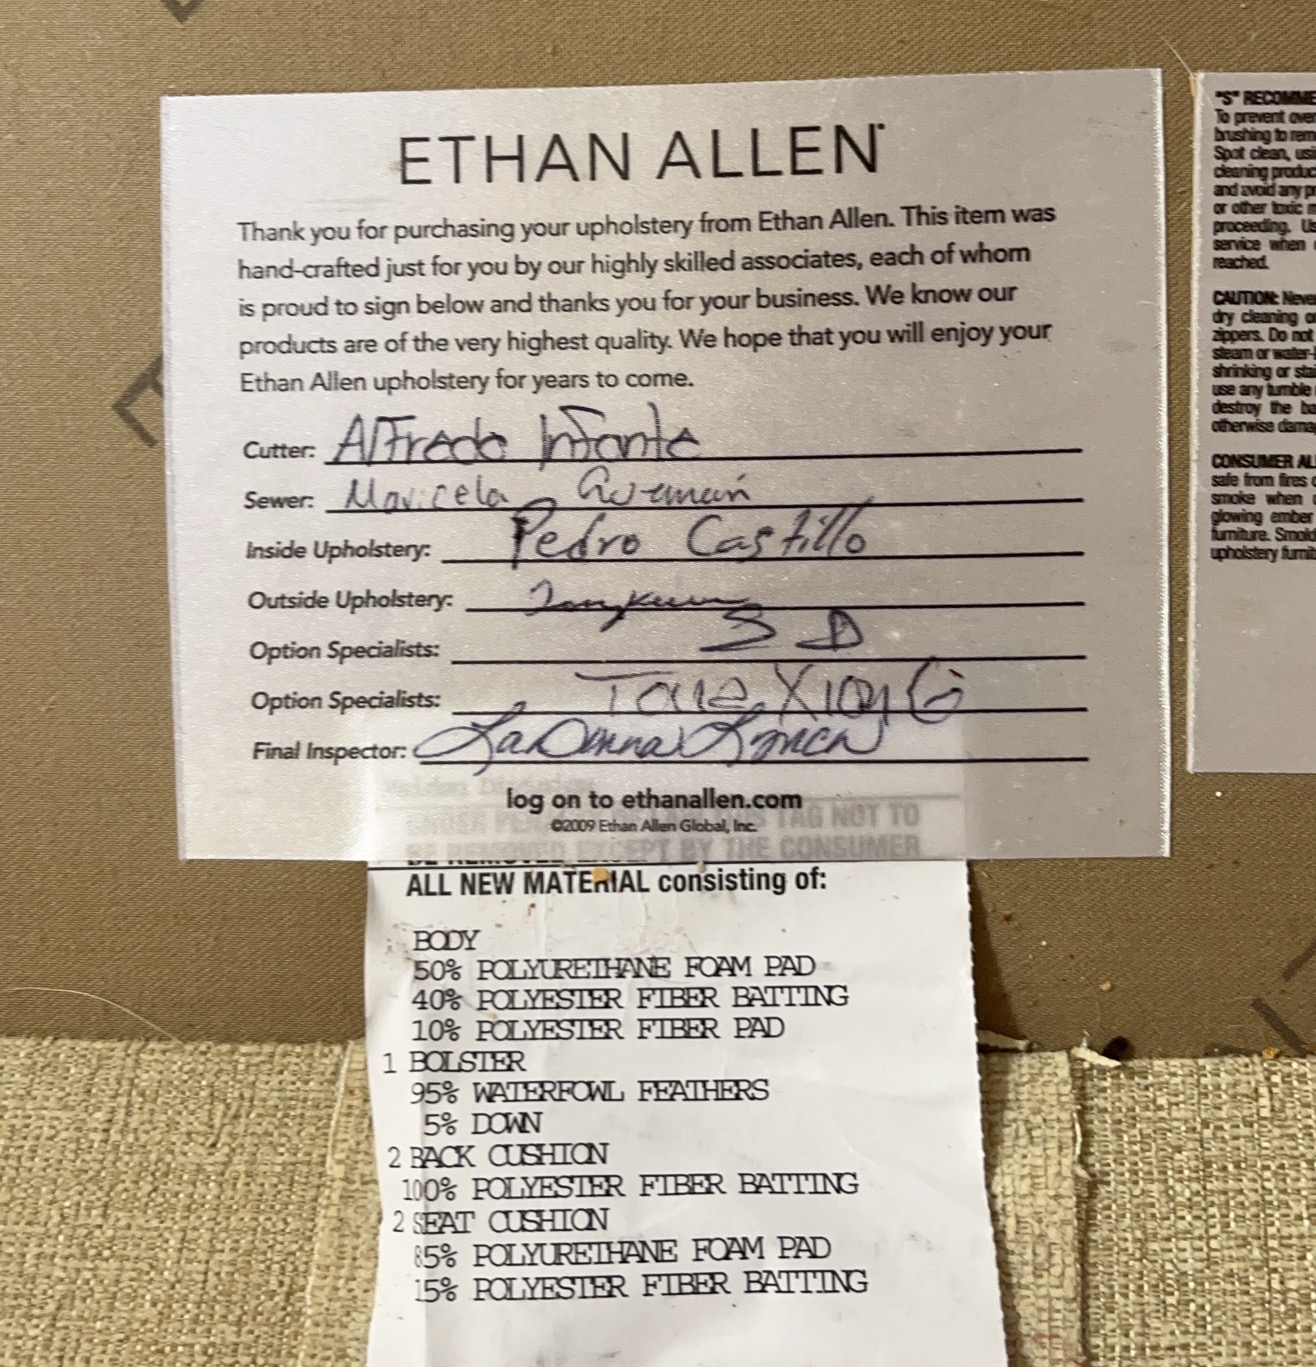 ETHAN ALLEN
Thank you for purchasing your upholstery from Ethan Allen. This item was
hand-crafted just for you by our highly skilled associates, each of whom
is proud to sign below and thanks you for your business. We know our
products are of the very highest quality. We hope that you will enjoy your
Ethan Allen upholstery for years to come.
Cutter: Alfredo Infante
Sewer: Maricela
Inside Upholstery: Pedro Castillo
Outside Upholstery:
Option Specialists: S D
Option Specialists: Xiong
Final Inspector: LaDonna
log on to ethanallen.com
©2009 Ethan Allen Global, Inc.
TAG NOT TO
BE REMOVED EXCEPT BY THE CONSUMER
ALL NEW MATERIAL consisting of:
BODY
50% POLYURETHANE FOAM PAD
40% POLYESTER FIBER BATTING
10% POLYESTER FIBER PAD
1 BOLSTER
95% WATERFOWL FEATHERS
5% DOWN
2 BACK CUSHION
100% POLYESTER FIBER BATTING
2 SEAT CUSHION
85% POLYURETHANE FOAM PAD
15% POLYESTER FIBER BATTING
"S" RECOMME
To prevent over
brushing to rem
Spot clean, usi
cleaning produc
and avoid any pr
or other toxic m
proceeding. Us
service when
reached.
CAUTION: Neve
dry cleaning o
zippers. Do not
steam or water-
shrinking or stai
use any tumble
destroy the ba
otherwise dama
CONSUMER AL
safe from fires
smoke when
glowing ember
furniture. Smold
upholstery furnit